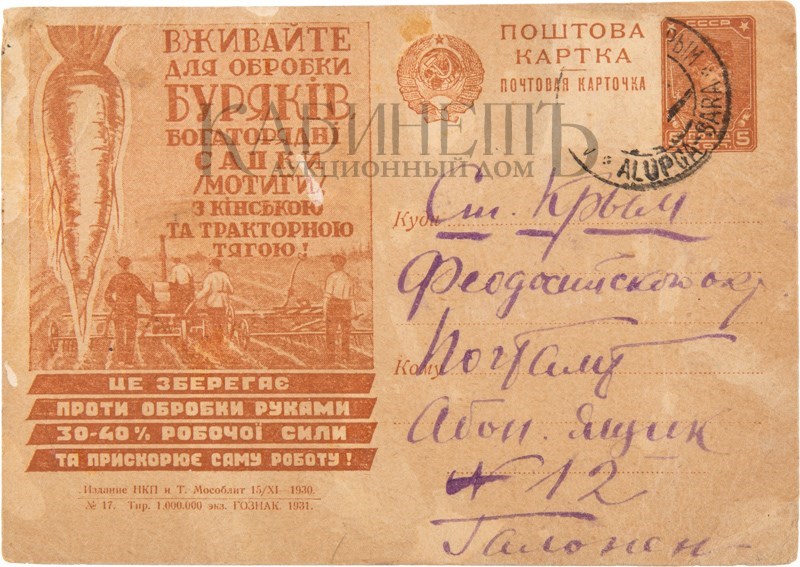 ВЖИВАЙТЕ
ДЛЯ ОБРОБКИ
БУРЯКІВ
БОГАТОРЯДНІ
САПКИ
/МОТИГИ/
З КІНСЬКОЮ
ТА ТРАКТОРНОЮ
ТЯГОЮ!
ЦЕ ЗБЕРЕГАЄ
ПРОТИ ОБРОБКИ РУКАМИ
30-40% РОБОЧОЇ СИЛИ
ТА ПРИСКОРЮЄ САМУ РОБОТУ!
Издание НКП и Т. Мособлит 15/XI—1930.
№ 17. Тир. 1.000.000 экз. ГОЗНАК. 1931.
ПОШТОВА
КАРТКА
ПОЧТОВАЯ КАРТОЧКА
СССР
5
ALUPGA SARA
КАБИНЕТЪ
АУКЦИОННЫЙ ДОМ
Куди Ст. Крым
Феодосийского окр
Кому Почтамт
Абон. ящик
№ 12